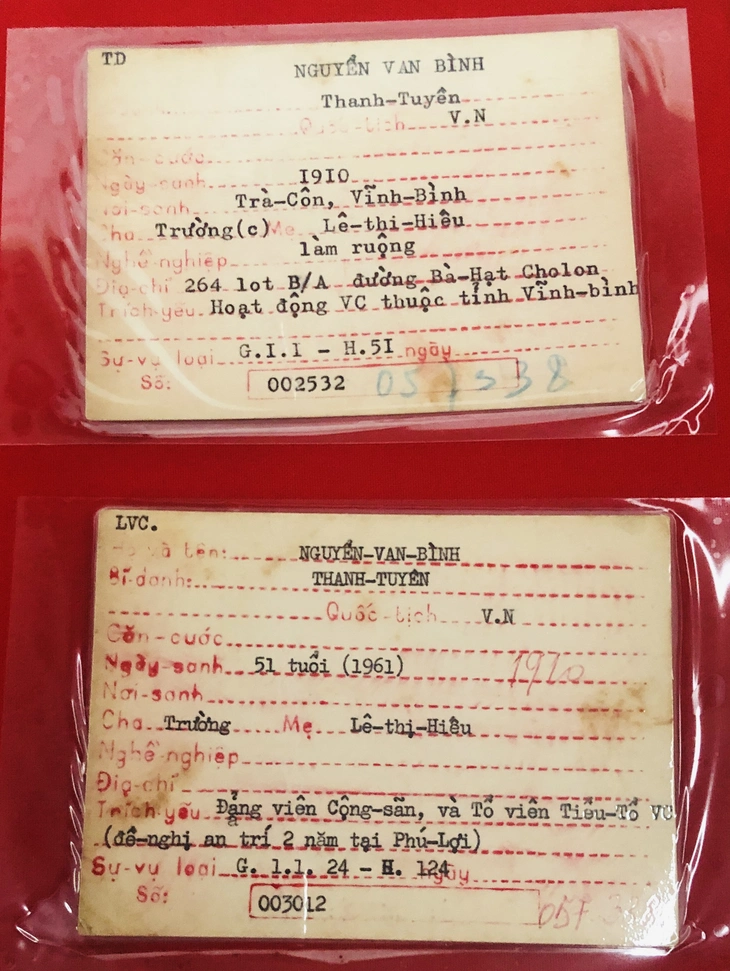 TD
NGUYỄN VAN BÌNH
Thanh-Tuyên
Quốc-tịch V.N
Căn-cước
Ngày-sanh 1910
Nơi-sanh Trà-Côn, Vĩnh-Bình
Cha Trường(c) Mẹ Lê-thị-Hiêu
Nghề-nghiệp làm ruộng
Địa-chỉ 264 lot B/A đường Bà-Hạt Cholon
Trích-yếu Hoạt động VC thuộc tỉnh Vĩnh-bình
Sự-vụ loại G.I.I - H.5I ngày
Số: 002532
LVC.
Họ và tên: NGUYỄN-VAN-BÌNH
Bí-danh: THANH-TUYÊN
Quốc-tịch V.N
Căn-cước
Ngày-sanh 51 tuổi (1961) 1910
Nơi-sanh
Cha Trường Mẹ Lê-thị-Hiêu
Nghề-nghiệp
Địa-chỉ
Trích-yếu Đảng viên Cộng-sãn, và Tổ viên Tiểu-Tổ VC
(đề-nghị an trí 2 năm tại Phú-Lợi)
Sự-vụ loại G. 1.1. 24 - H. 124 ngày
Số: 003012